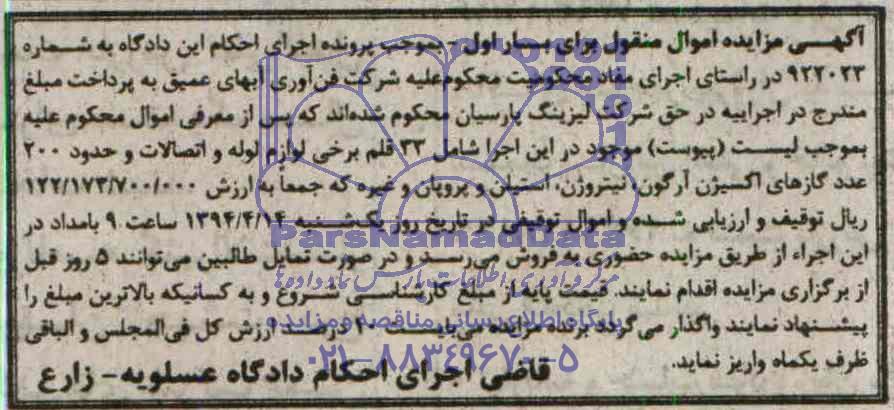 آگهی مزایده اموال منقول برای بار اول - بموجب پرونده اجرای احکام این دادگاه به شماره
۹۲۲۰۲۳ در راستای اجرای مفاد محکومیت محکوم‌علیه شرکت فن‌آوری آبهای عمیق به پرداخت مبلغ
مندرج در اجراییه در حق شرکت لیزینگ پارسیان محکوم شده‌اند که پس از معرفی اموال محکوم علیه
بموجب لیست (پیوست) موجود در این اجرا شامل ۳۳ قلم برخی لوازم لوله و اتصالات و حدود ۲۰۰
عدد گازهای اکسیژن آرگون، نیتروژن، استیلن و پروپان و غیره که جمعاً به ارزش ۱۲۲/۱۷۳/۷۰۰/۰۰۰
ریال توقیف و ارزیابی شده و اموال توقیفی در تاریخ روز یک‌شنبه ۱۳۹۴/۴/۱۴ ساعت ۹ بامداد در
ParsNamadData
این اجراء از طریق مزایده حضوری به فروش می‌رسد و در صورت تمایل طالبین می‌توانند ۵ روز قبل
مرکز فرآوری اطلاعات پارس نماد داده‌ها
از برگزاری مزایده اقدام نمایند. قیمت پایه از مبلغ کارشناسی شروع و به کسانیکه بالاترین مبلغ را
پایگاه اطلاع رسانی مناقصه و مزایده
پیشنهاد نمایند واگذار می‌گردد برنده مزایده می‌بایست ۱۰ درصد ارزش کل فی‌المجلس و الباقی
۰۲۱-۸۸۳۴۹۶۷۰-۵
ظرف یکماه واریز نماید.
قاضی اجرای احکام دادگاه عسلویه - زارع